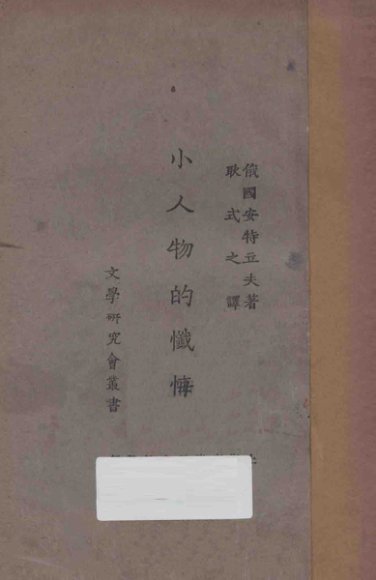 俄國安特立夫著
耿式之譯
小人物的懺悔
文學研究會叢書